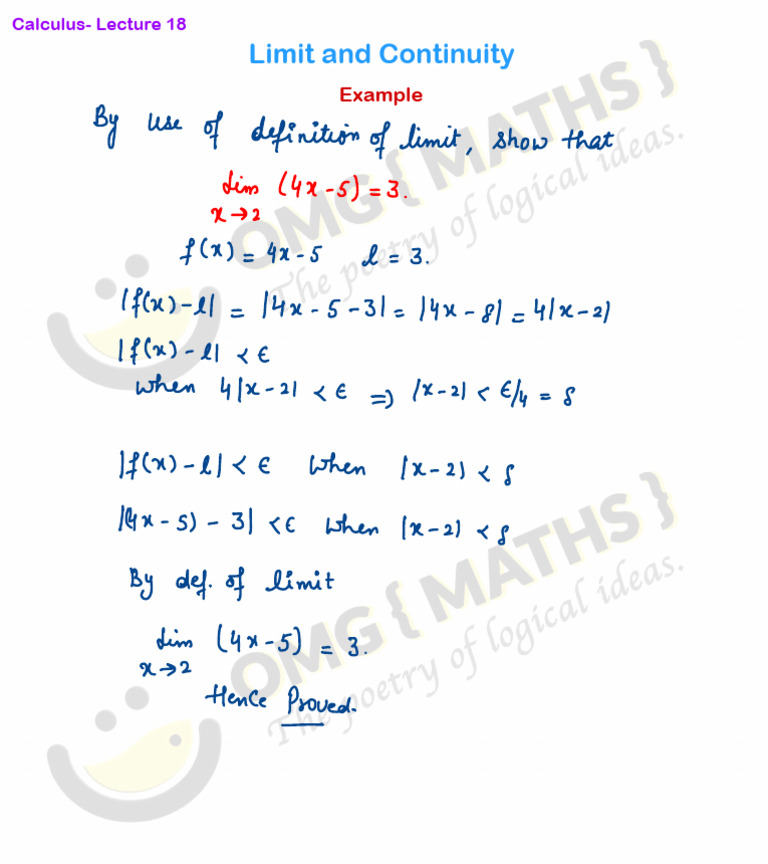 Calculus- Lecture 18
Limit and Continuity
Example
By use of definition of limit, show that
lim (4x-5) = 3.
x→2
f(x) = 4x-5 l = 3.
|f(x)-l| = |4x-5-3| = |4x-8| = 4|x-2|
|f(x)-l| < ϵ
when 4|x-2| < ϵ ⇒ |x-2| < ϵ/4 = δ
|f(x)-l| < ϵ when |x-2| < δ
|(4x-5)-3| < ϵ when |x-2| < δ
By def. of limit
lim (4x-5) = 3.
x→2
Hence Proved.
OMG{MATHS}
The poetry of logical ideas.
OMG{MATHS}
The poetry of logical ideas.